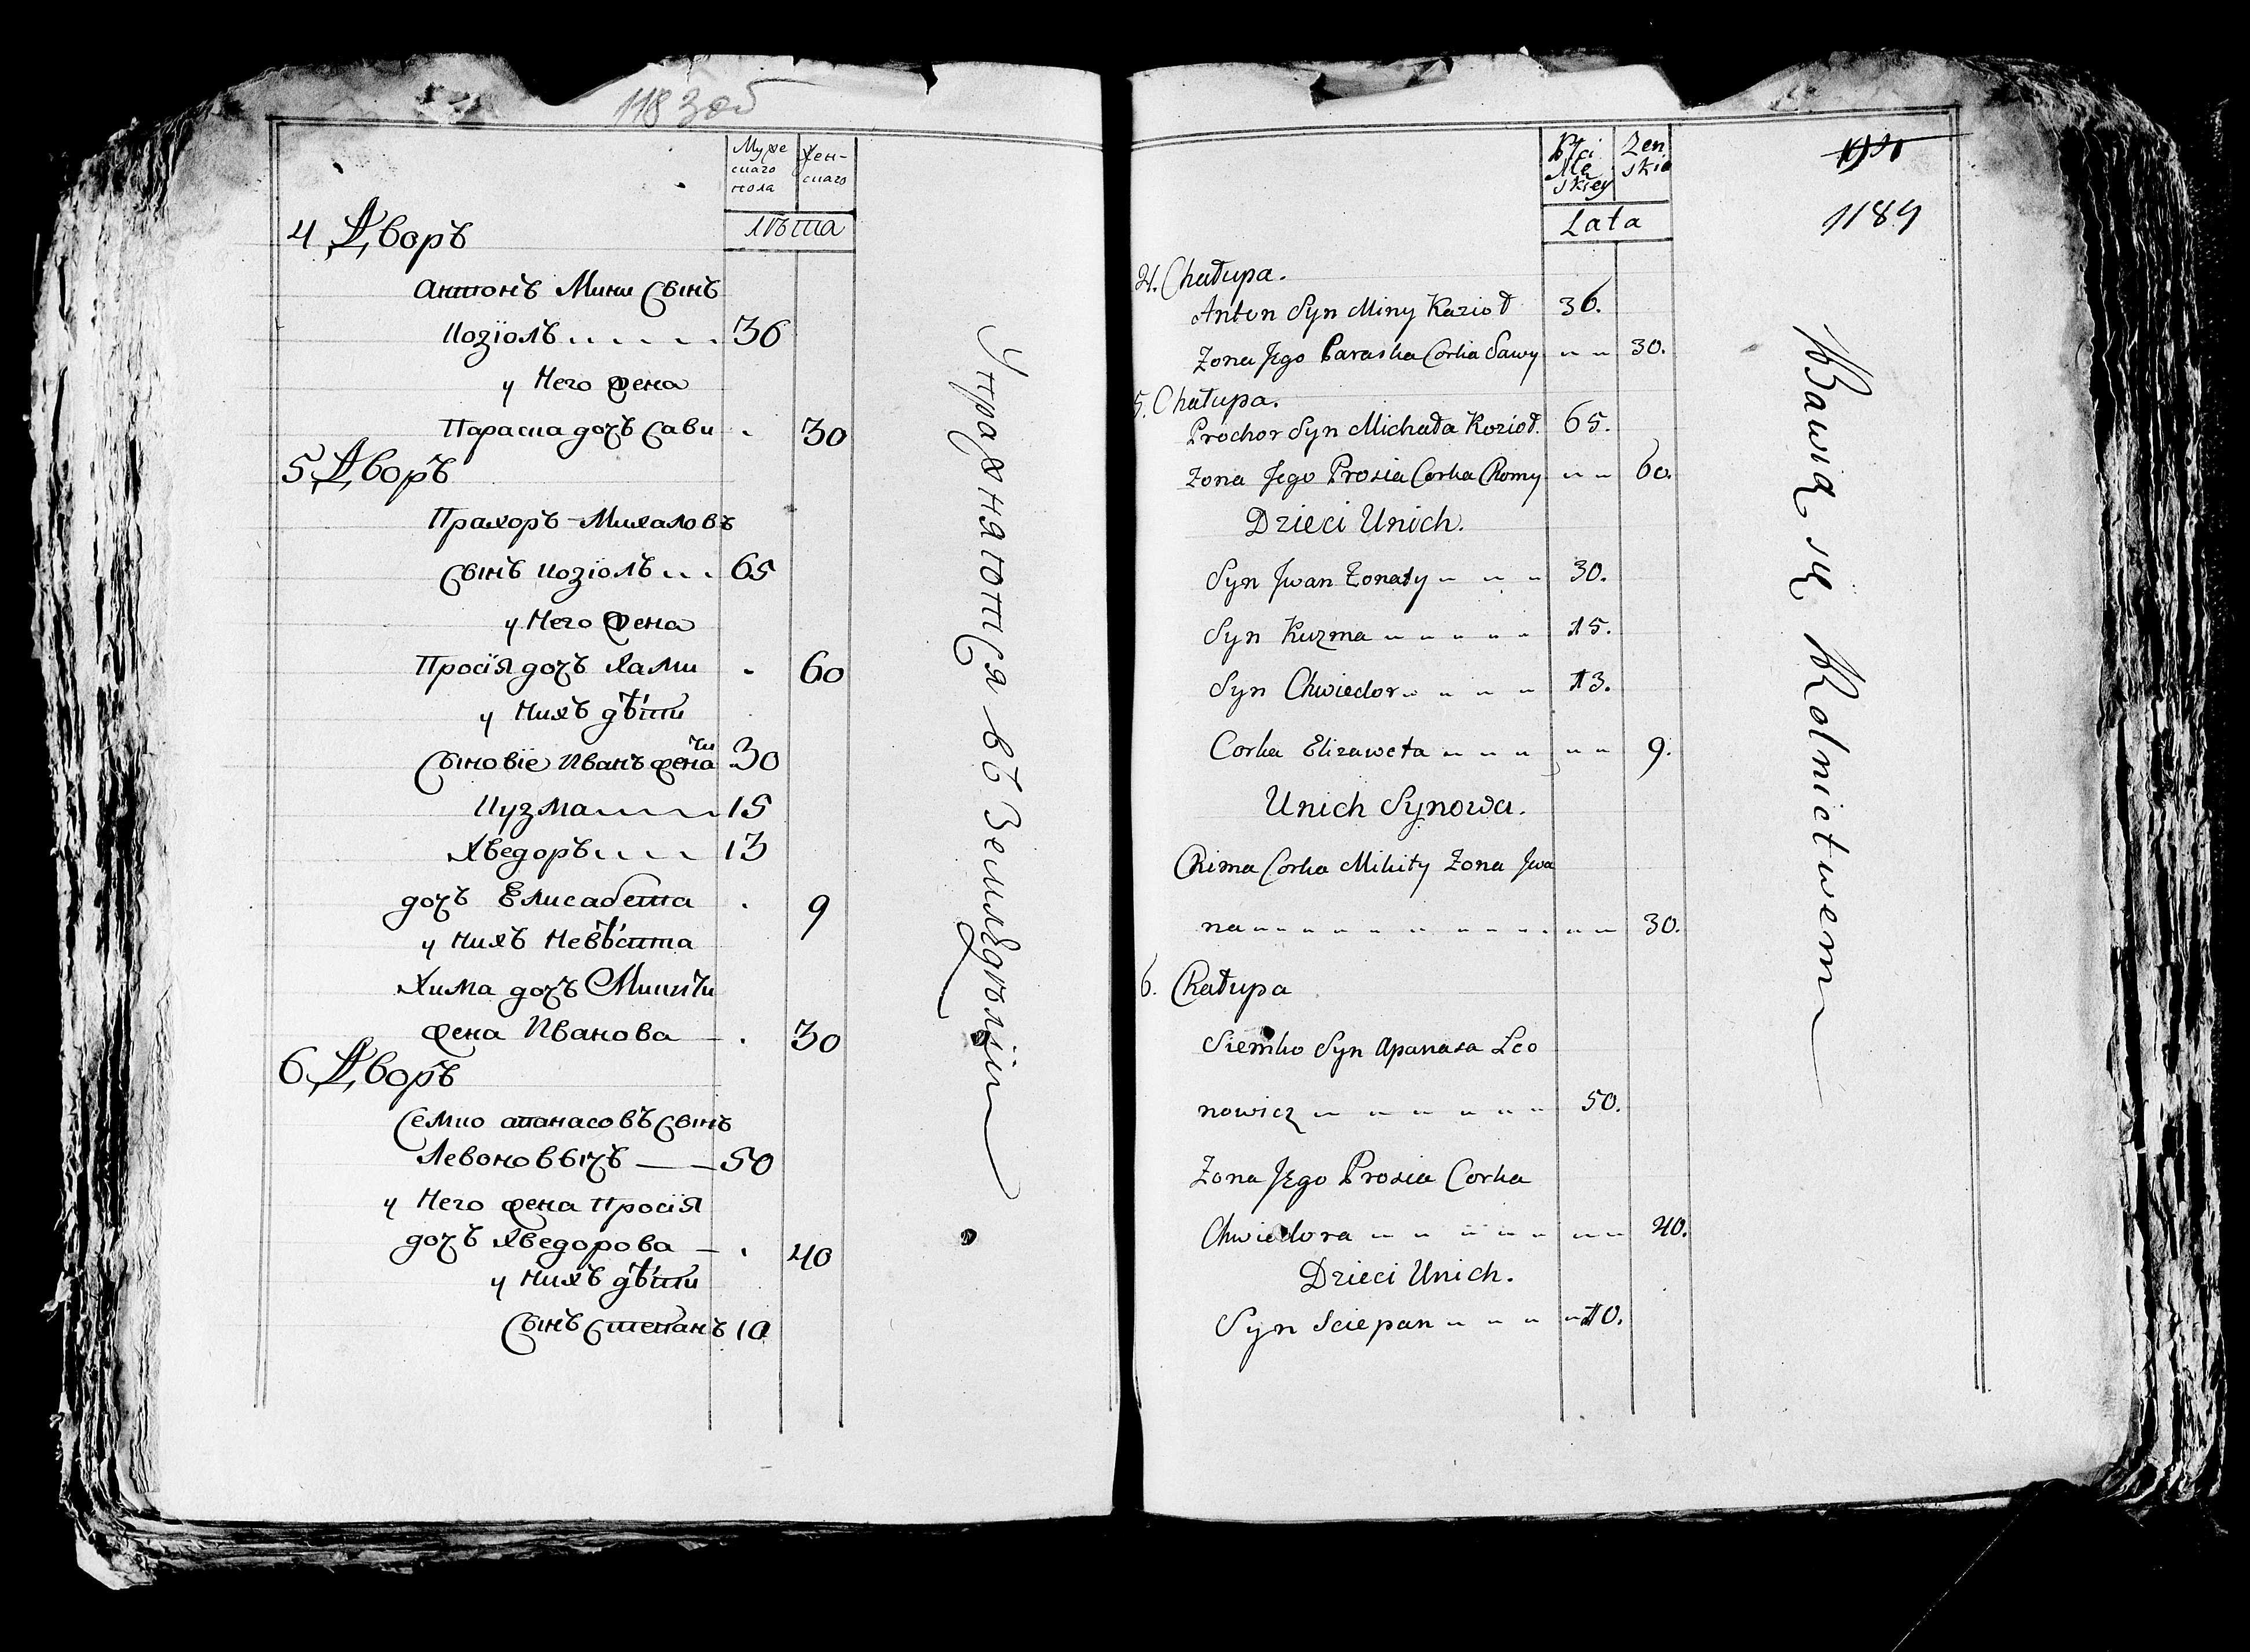 118 зоб
Муже
скаго
пола
Жен-
скаго
лѣта
4 Дворъ
Антонъ Мини Сынъ
Козїолъ 36
у Него жена
Параска дочъ Сави 30
5 Дворъ
Прахоръ Михаловъ
Сынъ Козїолъ 65
у Него жена
Просїя дочъ Хами 60
у Нихъ дѣти
Сыновїе Иванъ женати 30
Кузма 15
Хведоръ 13
дочъ Елисабета 9
у Нихъ Невѣстка
Хима дочъ Микити
жена Иванова 30
6 Дворъ
Семко апанасовъ Сынъ
Левоновычъ 50
у Него жена Просїя
дочъ Хведорова 40
у Нихъ дѣти
Сынъ Степанъ 10
Упражняются въ Земледѣлїи
Płci
Mę
skiey
Zen
skie
Lata
1189
4. Chałupa.
Anton Syn Miny Kozioł 36.
Zona Jego Paraska Corka Sawy 30.
5. Chałupa.
Prochor Syn Michała Kozioł. 65.
Zona Jego Prosia Corka Chomy 60.
Dzieci Unich.
Syn Jwan Zonaty 30.
Syn Kuzma 15.
Syn Chwiedor 13.
Corka Elizaweta 9.
Unich Synowa.
Chima Corka Mikity Zona Jwa
na 30.
6. Chałupa
Siemko Syn Apanasa Leo
nowicz 50.
Zona Jego Prosia Corka
Chwiedora 40.
Dzieci Unich.
Syn Sciepan 10.
Bawią się Rolnictwem